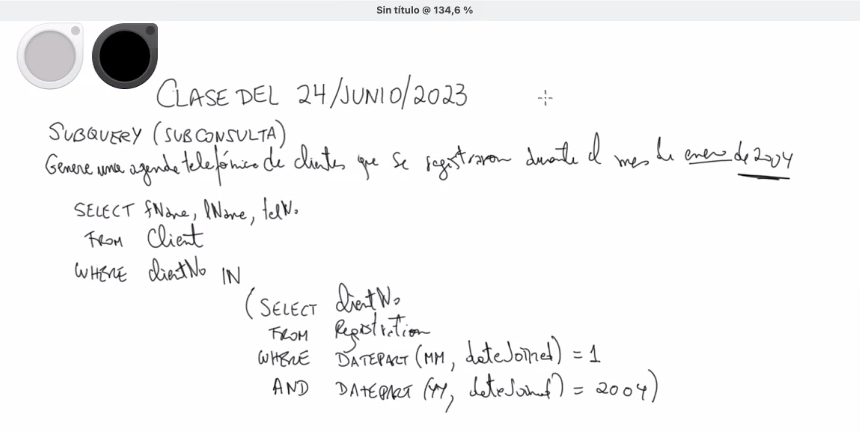 Sin título @ 134,6 %
CLASE DEL 24/JUNIO/2023
SUBQUERY (SUBCONSULTA)
Genere una agenda telefónica de clientes que se registraron durante el mes de enero de 2004
SELECT fName, lName, telNo
FROM Client
WHERE clientNo IN
(SELECT clientNo
FROM Registration
WHERE DATEPART (MM, dateJoined) = 1
AND DATEPART (YY, dateJoined) = 2004)